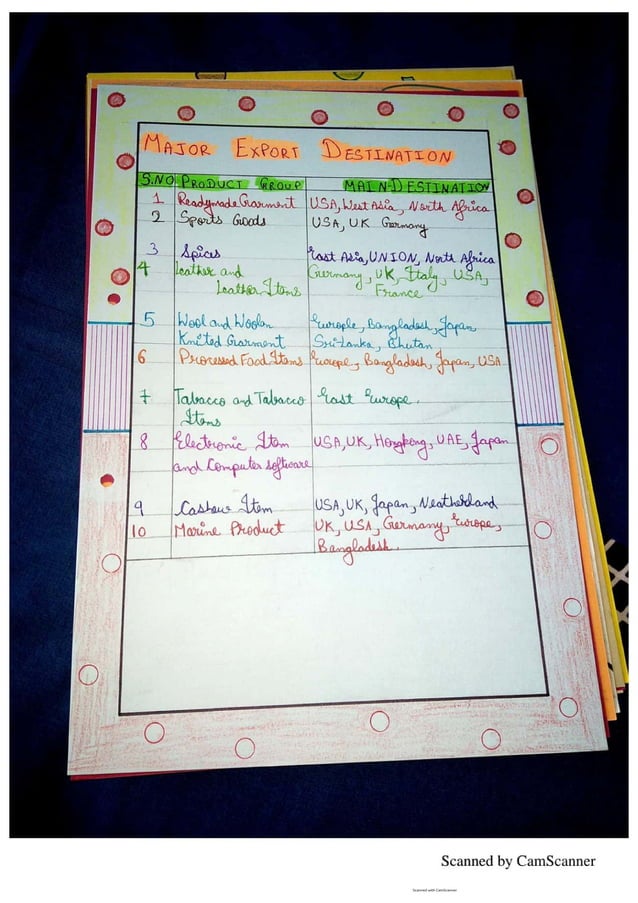 MAJOR EXPORT DESTINATION
S.NO PRODUCT GROUP MAIN-DESTINATION
1 Readymade Garment USA, West Asia, North Africa
2 Sports Goods USA, UK Germany
3 Spices East Asia, UNION, North Africa
4 Leather and Germany, UK, Italy, USA,
Leather Items France
5 Wool and Woolen Europle, Bangladesh, Japan,
Knited Garment Sri-Lanka, Bhutan
6 Processed Food Items Europe, Bangladesh, Japan, USA
7 Tabacco and Tabacco East Europe.
Items
8 Electronic Item USA, UK, Hongkong, UAE, Japan
and Computer software
9 Cashew Item USA, UK, Japan, Neatherland
10 Marine Product UK, USA, Germany, Europe,
Bangladesh.
Scanned by CamScanner
Scanned with CamScanner